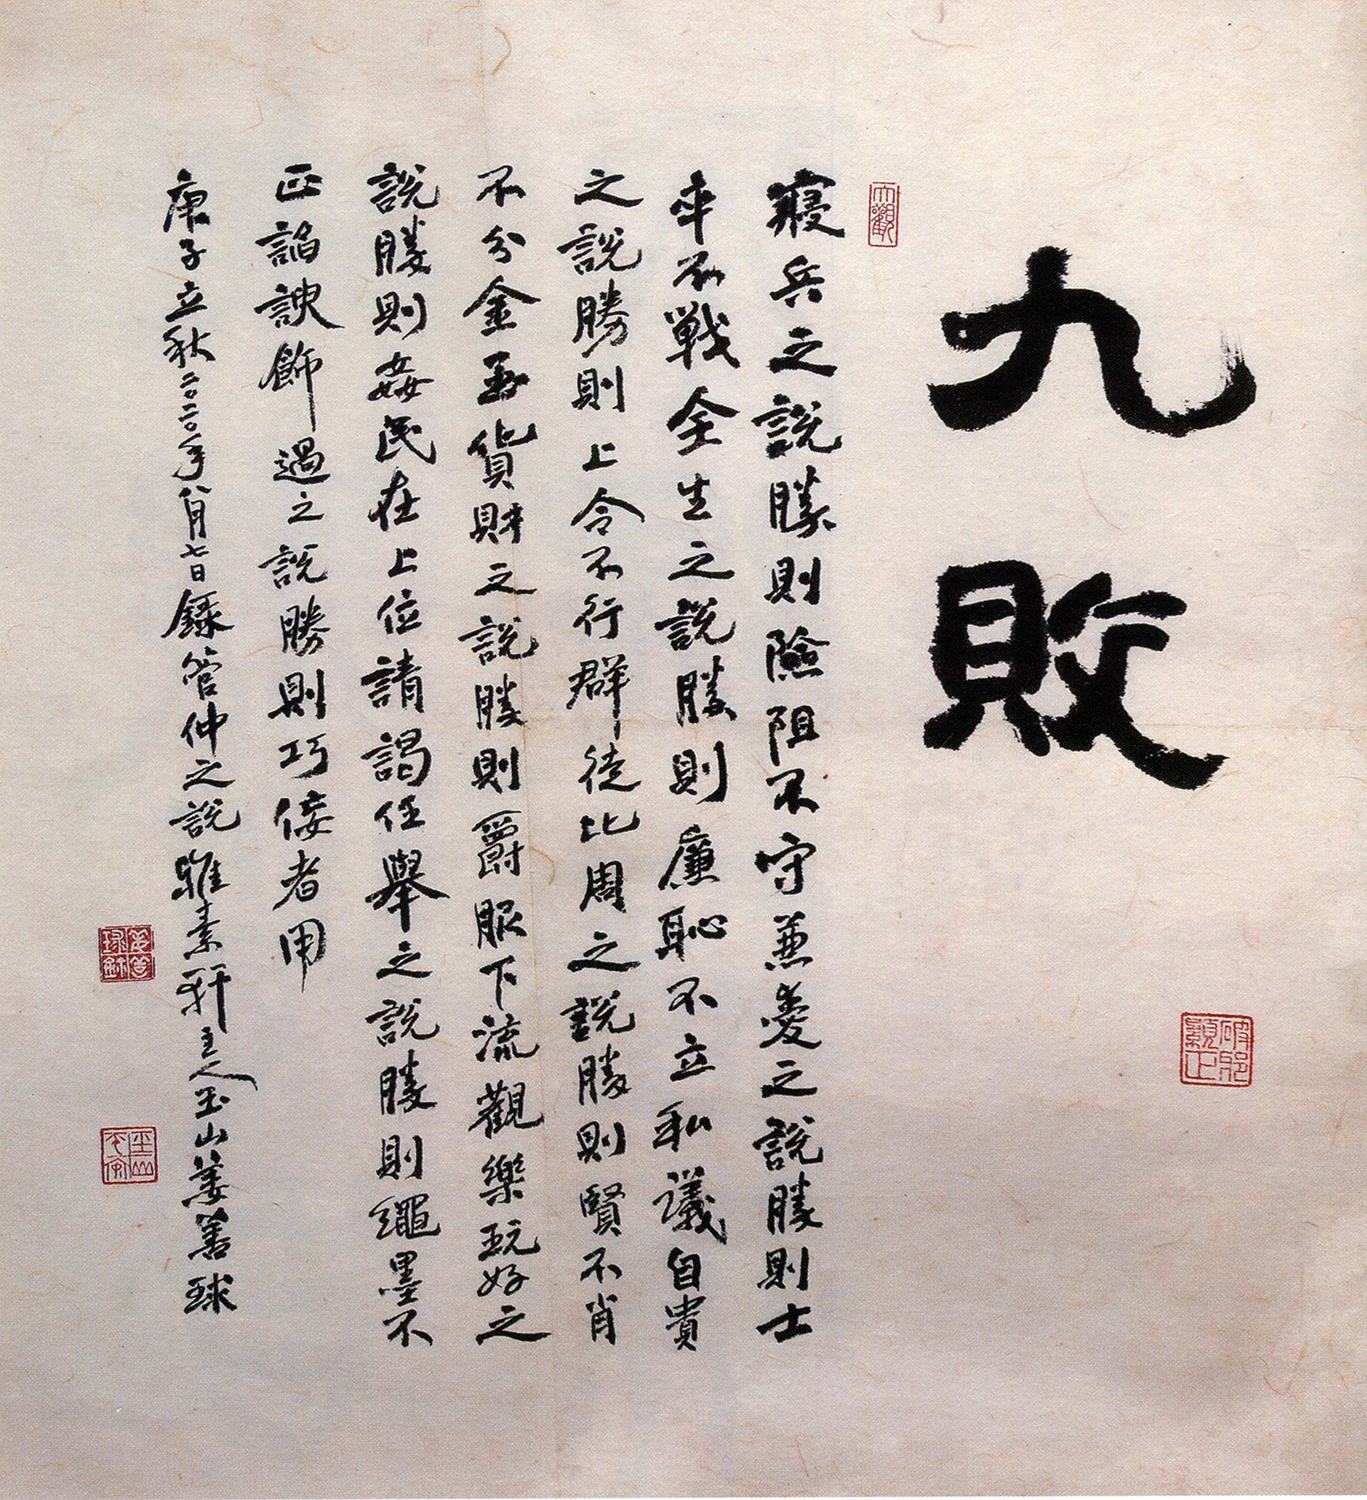 九敗
大觀
寢兵之說勝則險阻不守兼愛之說勝則士
卒不戰全生之說勝則廉恥不立私議自貴
之說勝則上令不行群徒比周之說勝則賢不肖
不分金玉貨財之說勝則爵服下流觀樂玩好之
說勝則姦民在上位請謁任舉之說勝則繩墨不
正諂諛飾過之說勝則巧佞者用
庚子立秋二〇二〇年八月七日錄管仲之說雅素軒主人玉山姜善球
破邪顯正
姜善球鉥